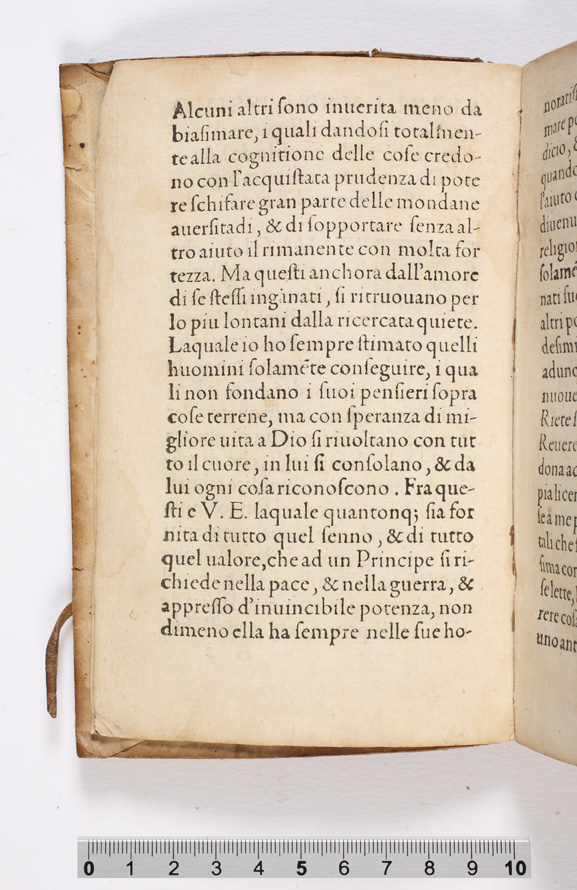 Alcuni altri ſono inuerita meno da
biaſimare, i quali dandoſi totalmen-
te alla cognitione delle coſe credo-
no con l'acquiſtata prudenza di pote
re ſchifare gran parte delle mondane
auerſitadi, & di ſopportare ſenza al-
tro aiuto il rimanente con molta for
tezza. Ma queſti anchora dall'amore
di ſe ſteſſi ingānati, ſi ritruouano per
lo piu lontani dalla ricercata quiete.
Laquale io ho ſempre ſtimato quelli
huomini ſolamēte conſeguire, i qua
li non fondano i ſuoi penſieri ſopra
coſe terrene, ma con ſperanza di mi-
gliore uita a Dio ſi riuoltano con tut
to il cuore, in lui ſi conſolano, & da
lui ogni coſa riconoſcono. Fra que-
ſti e V. E. laquale quantonq; ſia for
nita di tutto quel ſenno, & di tutto
quel ualore, che ad un Principe ſi ri-
chiede nella pace, & nella guerra, &
appreſſo d'inuincibile potenza, non
dimeno ella ha ſempre nelle ſue ho-
norati
mare
dicio, &
quando
l'aiuto
diuenu
religio
ſolamē
nati ſu
altri po
deſimi
adunc
nuoue
Riete
Reuere
dona ac
pia licen
ſe a me
tali che
ſima con
ſe lette,
rere coſ
uno ant
0 1 2 3 4 5 6 7 8 9 10